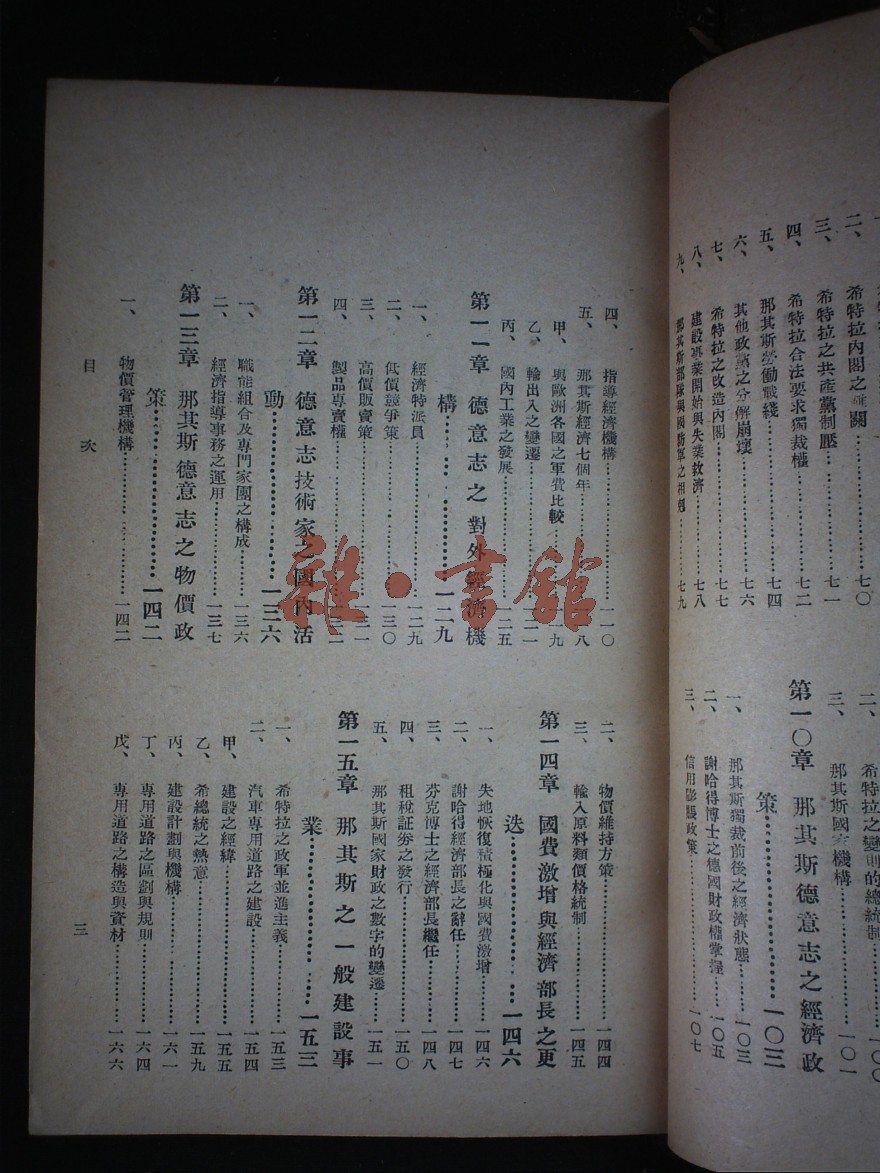 二、希特拉內閣之難關……七〇
三、希特拉之共產黨制壓……七一
四、希特拉合法要求獨裁權……七二
五、那其斯勞働戰綫……七四
六、其他政黨之分解崩壞……七六
七、希特拉之改造內閣
八、建設專業開始與失業救濟……七八
九、那其斯部隊與國防軍之相剋……七九
二、希特拉之變則的總統制……一〇〇
三、那其斯國家機構……一〇一
第一〇章 那其斯德意志之經濟政
策……一〇三
一、那其斯獨裁前後之經濟狀態……一〇三
二、謝哈得博士之德國財政權掌握……一〇五
三、信用膨脹政策……一〇七
四、指導經濟機構……一一〇
五、那其斯經濟七個年……八
甲、與歐洲各國之軍費比較……一一九
乙、輸出入之變遷……一二一
丙、國內工業之發展……一二五
第一一章 德意志之對外經濟機
構……一二九
一、經濟特派員……一二九
二、低價競爭策……一三〇
三、高價販賣策……一三一
四、製品專賣權……一三二
第一二章 德意志技術家之國內活
動……一三六
一、職能組合及專門家團之構成……一三六
二、經濟指導事務之運用……一三七
第一三章 那其斯德意志之物價政
策……一四二
一、物價管理機構……一四二
二、物價維持方策……一四四
三、輸入原料類價格統制……一四五
第一四章 國費激增與經濟部長之更
迭……一四六
一、失地恢復積極化與國費激增……一四六
二、謝哈得經濟部長之辭任……一四七
三、芬克博士之經濟部長繼任……一四八
四、租稅証券之發行……一五〇
五、那其斯國家財政之數字的變遷……一五一
第一五章 那其斯之一般建設事
業……一五三
一、希特拉之政軍並進主義……一五三
二、汽車專用道路之建設……一五四
甲、建設之經緯……一五五
乙、希總統之熱意……一五九
丙、建設計劃與機構……一六一
丁、專用道路之區劃與規則……一六四
戊、專用道路之構造與資材……一六六
目次
三
雜·書館